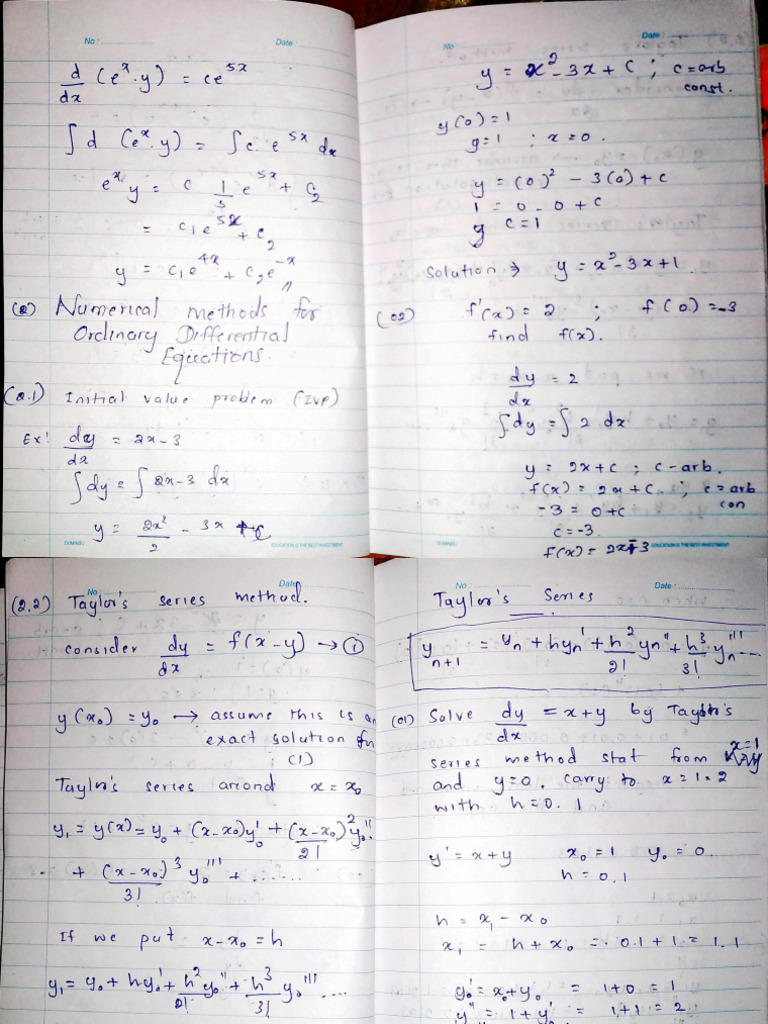 No : Date :
d/dx (eˣ·y) = ce⁵ˣ
∫d (eˣ·y) = ∫c. e⁵ˣ dx
eˣy = c 1/5 e⁵ˣ + C₂
= c₁e⁵ˣ + c₂
y = c₁e⁴ˣ + c₂e⁻ˣ //
(2) Numerical methods for
Ordinary Differential
Equations.
(2.1) Initial value problem (IVP)
Ex: dy/dx = 2x-3
∫dy = ∫2x-3 dx
y = 2x²/2 - 3x + c
EDUCATION IS THE BEST INVESTMENT
No Date :
y = x² - 3x + C ; c = arb
const.
y(0) = 1
y=1 ; x=0.
y = (0)² - 3(0) + c
1 = 0 - 0 + c
y c=1
Solution ⇒ y = x² - 3x + 1
(02) f'(x) = 2 ; f(0) = -3
find f(x).
dy/dx = 2
∫dy = ∫2 dx
y = 2x + c ; c - arb.
f(x) = 2x + C. ; c = arb
con
-3 = 0 + c
c = -3
f(x) = 2x-3
EDUCATION IS THE BEST INVESTMENT
No : Date :
(2.2) Taylor's series method.
consider dy/dx = f(x-y) → ①
y(x₀) = y₀ → assume this is an
exact solution for
(1)
Taylor's series around x = x₀
y₁ = y(x) = y₀ + (x-x₀)y₀' + (x-x₀)²/2! y₀''
+ (x-x₀)³/3! y₀''' + ......
If we put x-x₀ = h
y₁ = y₀ + hy₀' + h²/2! y₀'' + h³/3! y₀''' ....
No : Date :
Taylor's Series
yₙ₊₁ = yₙ + hyₙ' + h²/2! yₙ'' + h³/3! yₙ''' ...
(01) Solve dy/dx = x+y by Taylor's
series method stat from x=1
and y=0. carry to x = 1.2
with h = 0.1
y' = x+y x₀ = 1 y₀ = 0.
h = 0.1
h = x₁ - x₀
x₁ = h + x₀ = 0.1 + 1 = 1.1
y₀' = x₀+y₀ = 1+0 = 1
y'' = 1 + y₀' = 1+1 = 2